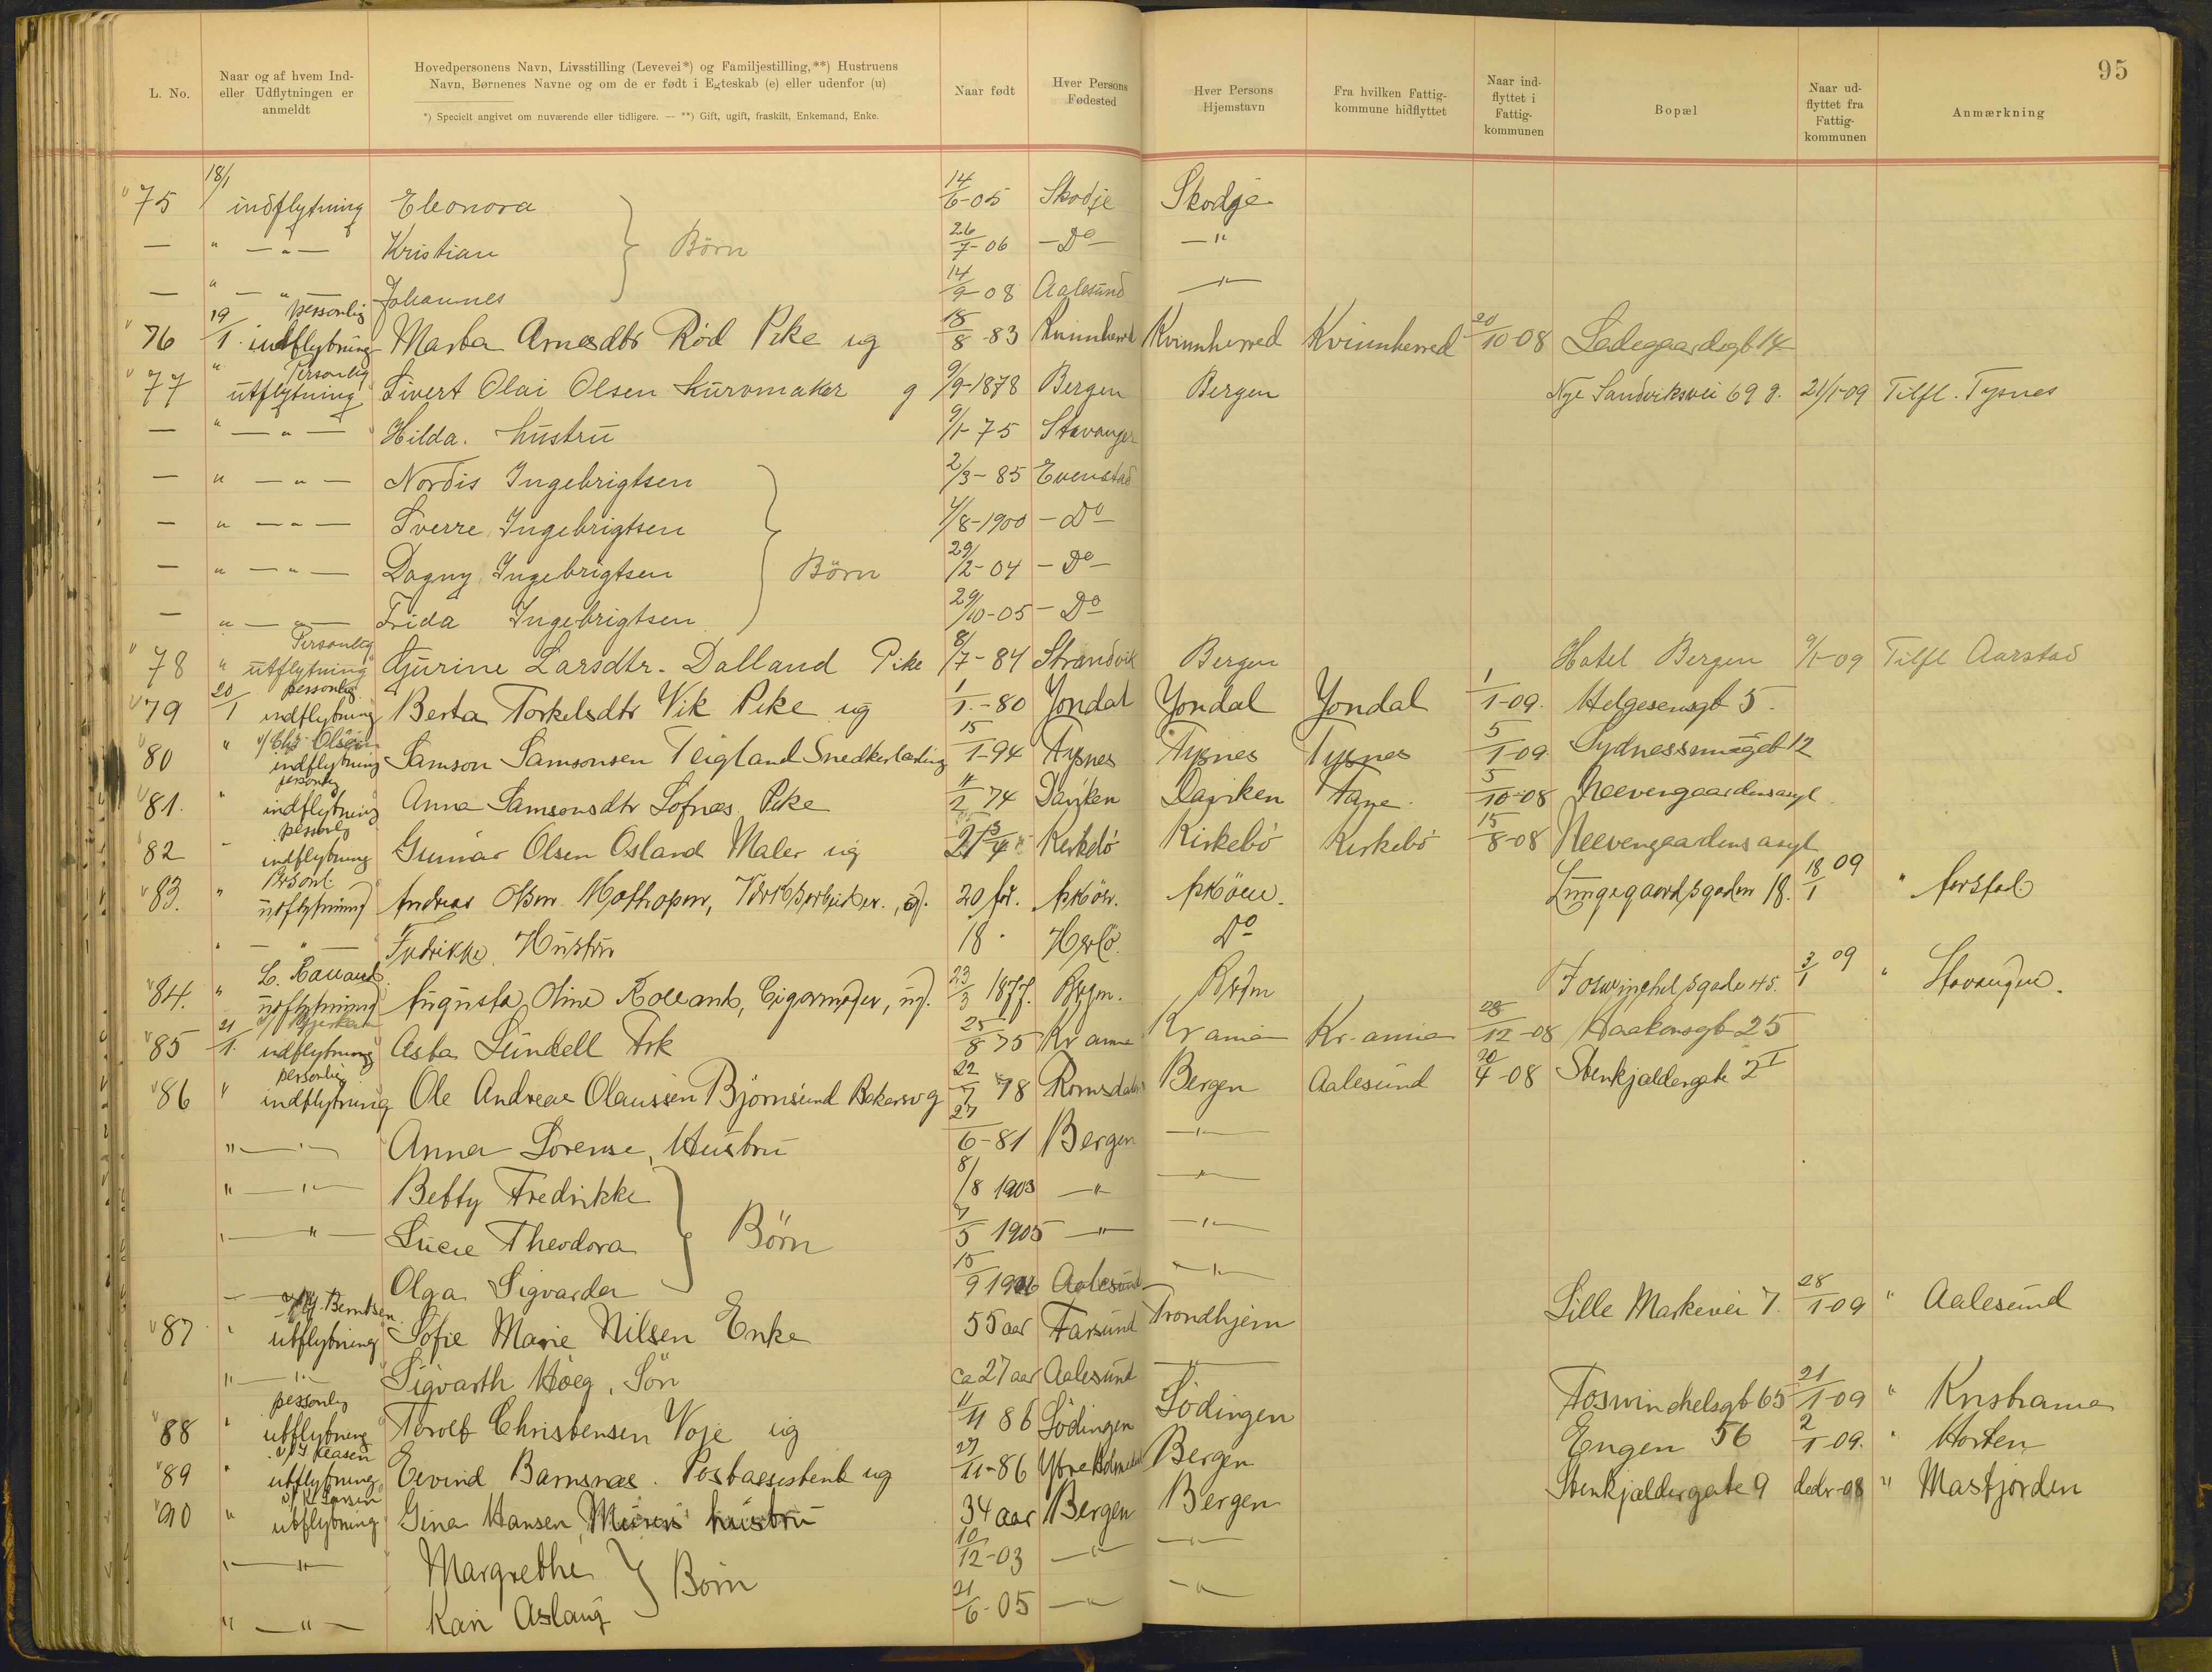 95
L. No. Naar og af hvem Ind- eller Udflytningen er anmeldt Hovedpersonens Navn, Livsstilling (Levevei*) og Familjestilling,**) Hustruens Navn, Børnenes Navne og om de er født i Egteskab (e) eller udenfor (u) Naar født Hver Persons Fødested Hver Persons Hjemstavn Fra hvilken Fattig- kommune hidflyttet Naar ind- flyttet i Fattig- kommunen Bopæl Naar ud- flyttet fra Fattig- kommunen Anmærkning
*) Specielt angivet om nuværende eller tidligere. — **) Gift, ugift, fraskilt, Enkemand, Enke.
75 18/1 indflytning Eleonora 14/6-05 Skodje Skodje
— " — " — Kristian } Börn 26/7-06 — Do — — "
— " — " — Johannes 14/9-08 Aalesund — " —
76 19/1 personlig indflytning Marta Arnesdtr Röd Pike ug 18/8-83 Kvinnherred Kvinnherred Kvinnherred 20/10-08 Ladegaardsgt 14
77 " Personlig utflytning Sivert Olai Olsen kurvmaker g 9/9-1878 Bergen Bergen Nye Sandviksvei 69 g. 21/1-09 Tilfl. Tysnes
— " — " — Hilda. hustru 9/1-75 Stavanger
— " — " — Nordis Ingebrigtsen 2/3-85 Evenstad
— " — " — Sverre Ingebrigtsen 4/8-1900 — Do
— " — " — Dagny Ingebrigtsen } Börn 29/2-04 — Do —
— " — " — Frida Ingebrigtsen 29/10-05 — Do
78 " Personlig utflytning Gjurine Larsdtr. Dalland Pike 8/7-84 Strandvik Bergen Hotel Bergen 9/1-09 Tilfl Aarstad
79 20/1 personlig indflytning Berta Torkelsdtr Vik Pike ug 1/1-80 Jondal Jondal Jondal 1/1-09. Helgesensgt 5.
80 " v/ Chr Olsen indflytning Samson Samsonsen Teigland Snedkerlærling 15/1-94 Tysnes Tysnes Tysnes 5/1-09 Sydnessmuget 12
81. " personlig indflytning Anna Samsonsdtr Lofnæs Pike 11/2 74 Daviken Daviken Fane. 5/10-08 Neevengaardens asyl
82 " personlig indflytning Gunnar Olsen Osland Maler ug Kirkebö Kirkebö Kirkebö 15/8-08 Neevengaardens asyl
83. " Personl. utflytning Andreas Olsen Mathopen, g. 20 Askøen. Askøen. Lungegaardsgaden 18. 18/1 09 "
" — " — Fredrikke, Hustru 18 " Herlö. Do
84. " utflytning Augusta Oline Rolland, ug. 23/3 1877. Bergen. Bergen Foswinckelsgade 45. 3/1 09 " Stavanger.
85 21/1. indflytning Asta Lundell Frk 25/8 75 Kr ania Kr ania Kr. ania 28/12-08 Haakonsgt 25
86 " personlig indflytning Ole Andreas Olaussen Björnsund Bakersv g 22/7 78 Romsdalen Bergen Aalesund 20/4-08 Stenkjeldergate 2 I
" — " — Anna Lorense, Hustru 27/6-81 Bergen — " —
" — " — Betty Fredrikke 8/8 1903 — " — — " —
" — " — Lucie Theodora } Börn 7/5 1905 — " — — " —
— Olga Sigvarda 15/9 1906 Aalesund — " —
87 " Berntsen utflytning Sofie Marie Nilsen Enke 55 aar Farsund Trondhjem Lille Markevei 7. 28/1-09 " Aalesund
" — " — Sigvarth Höeg, Sön ca 27 aar Aalesund — " —
88 " personlig utflytning Torolf Christensen Voje ug 11/11 86 Lödingen Lödingen Foswinckelsgt 65 21/1-09 " Kristiania
89 " utflytning Eivind Barnsnæs. Postassistent ug 27/11-86 Ytre Holmedal Bergen Engen 56 2/1-09. " Horten
90 " v/ K. Larsen utflytning Gina Hansen hustru 34 aar Bergen Bergen Stenkjeldergate 9 dedr-08 " Masfjorden
" — " — Margrethe } Börn 10/12-03 — " — — " —
" — " — Kari Aslaug 21/6-05 — " — — " —